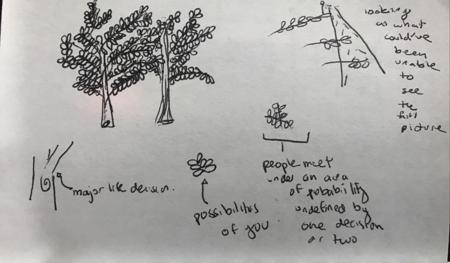 looking
as what
could've
been
unable
to
see
the
full
picture
major life decision.
possibilities
of you
people meet
under an area
of probability
undefined by
one decision
or two